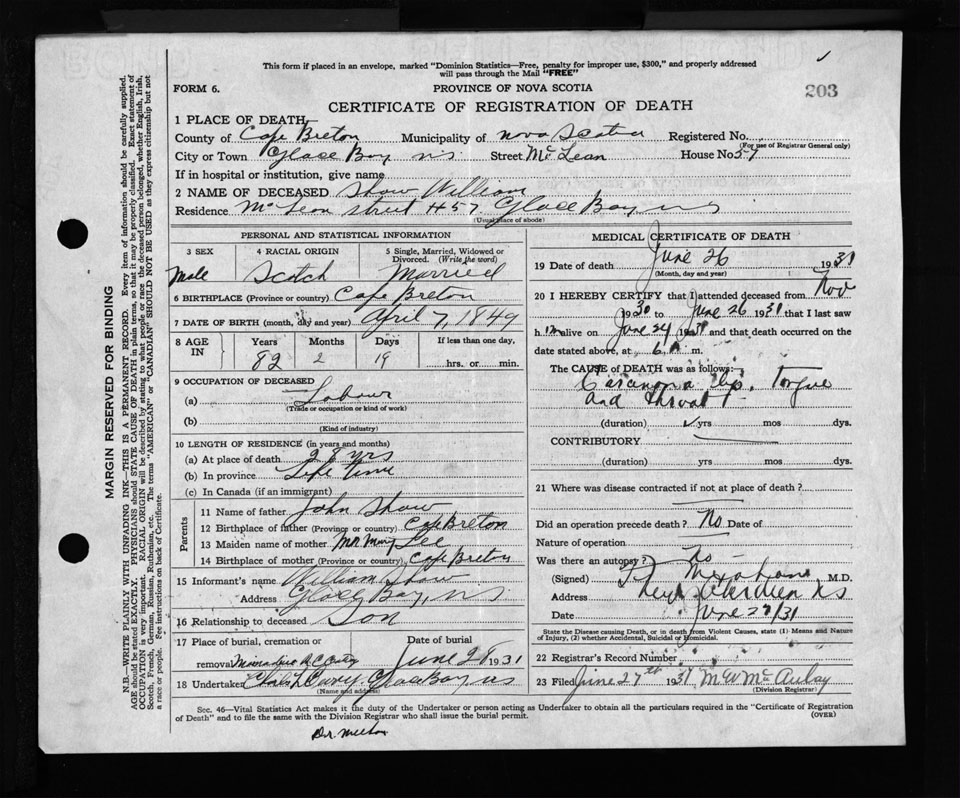 This form if placed in an envelope, marked "Dominion Statistics—Free, penalty for improper use, $300," and properly addressed
will pass through the Mail "FREE"
FORM 6.
PROVINCE OF NOVA SCOTIA
203
CERTIFICATE OF REGISTRATION OF DEATH
1 PLACE OF DEATH
County of Cape Breton Municipality of Nova Scotia Registered No.
(For use of Registrar General only)
City or Town Glace Bay NS Street Mc Lean House No. 57
If in hospital or institution, give name
2 NAME OF DECEASED Shaw William
Residence Mc Lean street # 57 Glace Bay NS
(Usual place of abode)
PERSONAL AND STATISTICAL INFORMATION
3 SEX 4 RACIAL ORIGIN 5 Single, Married, Widowed or
Divorced. (Write the word)
Male Scotch Married
6 BIRTHPLACE (Province or country) Cape Breton
7 DATE OF BIRTH (month, day and year) April 7, 1849
8 AGE IN Years Months Days If less than one day,
82 2 19 hrs. or min.
9 OCCUPATION OF DECEASED
(a) Labour
(Trade or occupation or kind of work)
(b)
(Kind of industry)
10 LENGTH OF RESIDENCE (in years and months)
(a) At place of death 28 yrs
(b) In province Life time
(c) In Canada (if an immigrant)
Parents
11 Name of father John Shaw
12 Birthplace of father (Province or country) Cape Breton
13 Maiden name of mother Mary Lee
14 Birthplace of mother (Province or country) Cape Breton
15 Informant's name William Shaw
Address Glace Bay, NS
16 Relationship to deceased Son
17 Place of burial, cremation or Date of burial
removal June 28 1931
18 Undertaker Curry Glace Bay NS
(Name and address)
MEDICAL CERTIFICATE OF DEATH
19 Date of death June 26 1931
(Month, day and year)
20 I HEREBY CERTIFY that I attended deceased from Nov
1930 to June 26 1931 that I last saw
h im alive on June 24 1931 and that death occurred on
the date stated above, at 6 m.
The CAUSE of DEATH was as follows:
Carcinoma lip, tongue
and throat
(duration) yrs mos dys.
CONTRIBUTORY
(duration) yrs mos dys.
21 Where was disease contracted if not at place of death?
Did an operation precede death? No Date of
Nature of operation
Was there an autopsy? No
(Signed) M.D.
Address New Aberdeen NS
Date June 27/31
State the Disease causing Death, or in death from Violent Causes, state (1) Means and Nature
of Injury, (2) whether Accidental, Suicidal or Homicidal.
22 Registrar's Record Number
23 Filed June 27th 1931 M W McAulay
(Division Registrar)
Sec. 46—Vital Statistics Act makes it the duty of the Undertaker or person acting as Undertaker to obtain all the particulars required in the "Certificate of Registration
of Death" and to file the same with the Division Registrar who shall issue the burial permit.
(OVER)
MARGIN RESERVED FOR BINDING
N.B.—WRITE PLAINLY WITH UNFADING INK—THIS IS A PERMANENT RECORD. Every item of information should be carefully supplied.
AGE should be stated EXACTLY. PHYSICIANS should STATE CAUSE OF DEATH in plain terms, so that it may be properly classified. Exact statement of
OCCUPATION is very important. RACIAL ORIGIN will be described by stating to what people or race the deceased person belonged, whether English, Irish,
Scotch, French, German, Russian, Ruthenian, etc. The terms "AMERICAN" or "CANADIAN" SHOULD NOT BE USED as they express citizenship but not
a race or people. See instructions on back of Certificate.